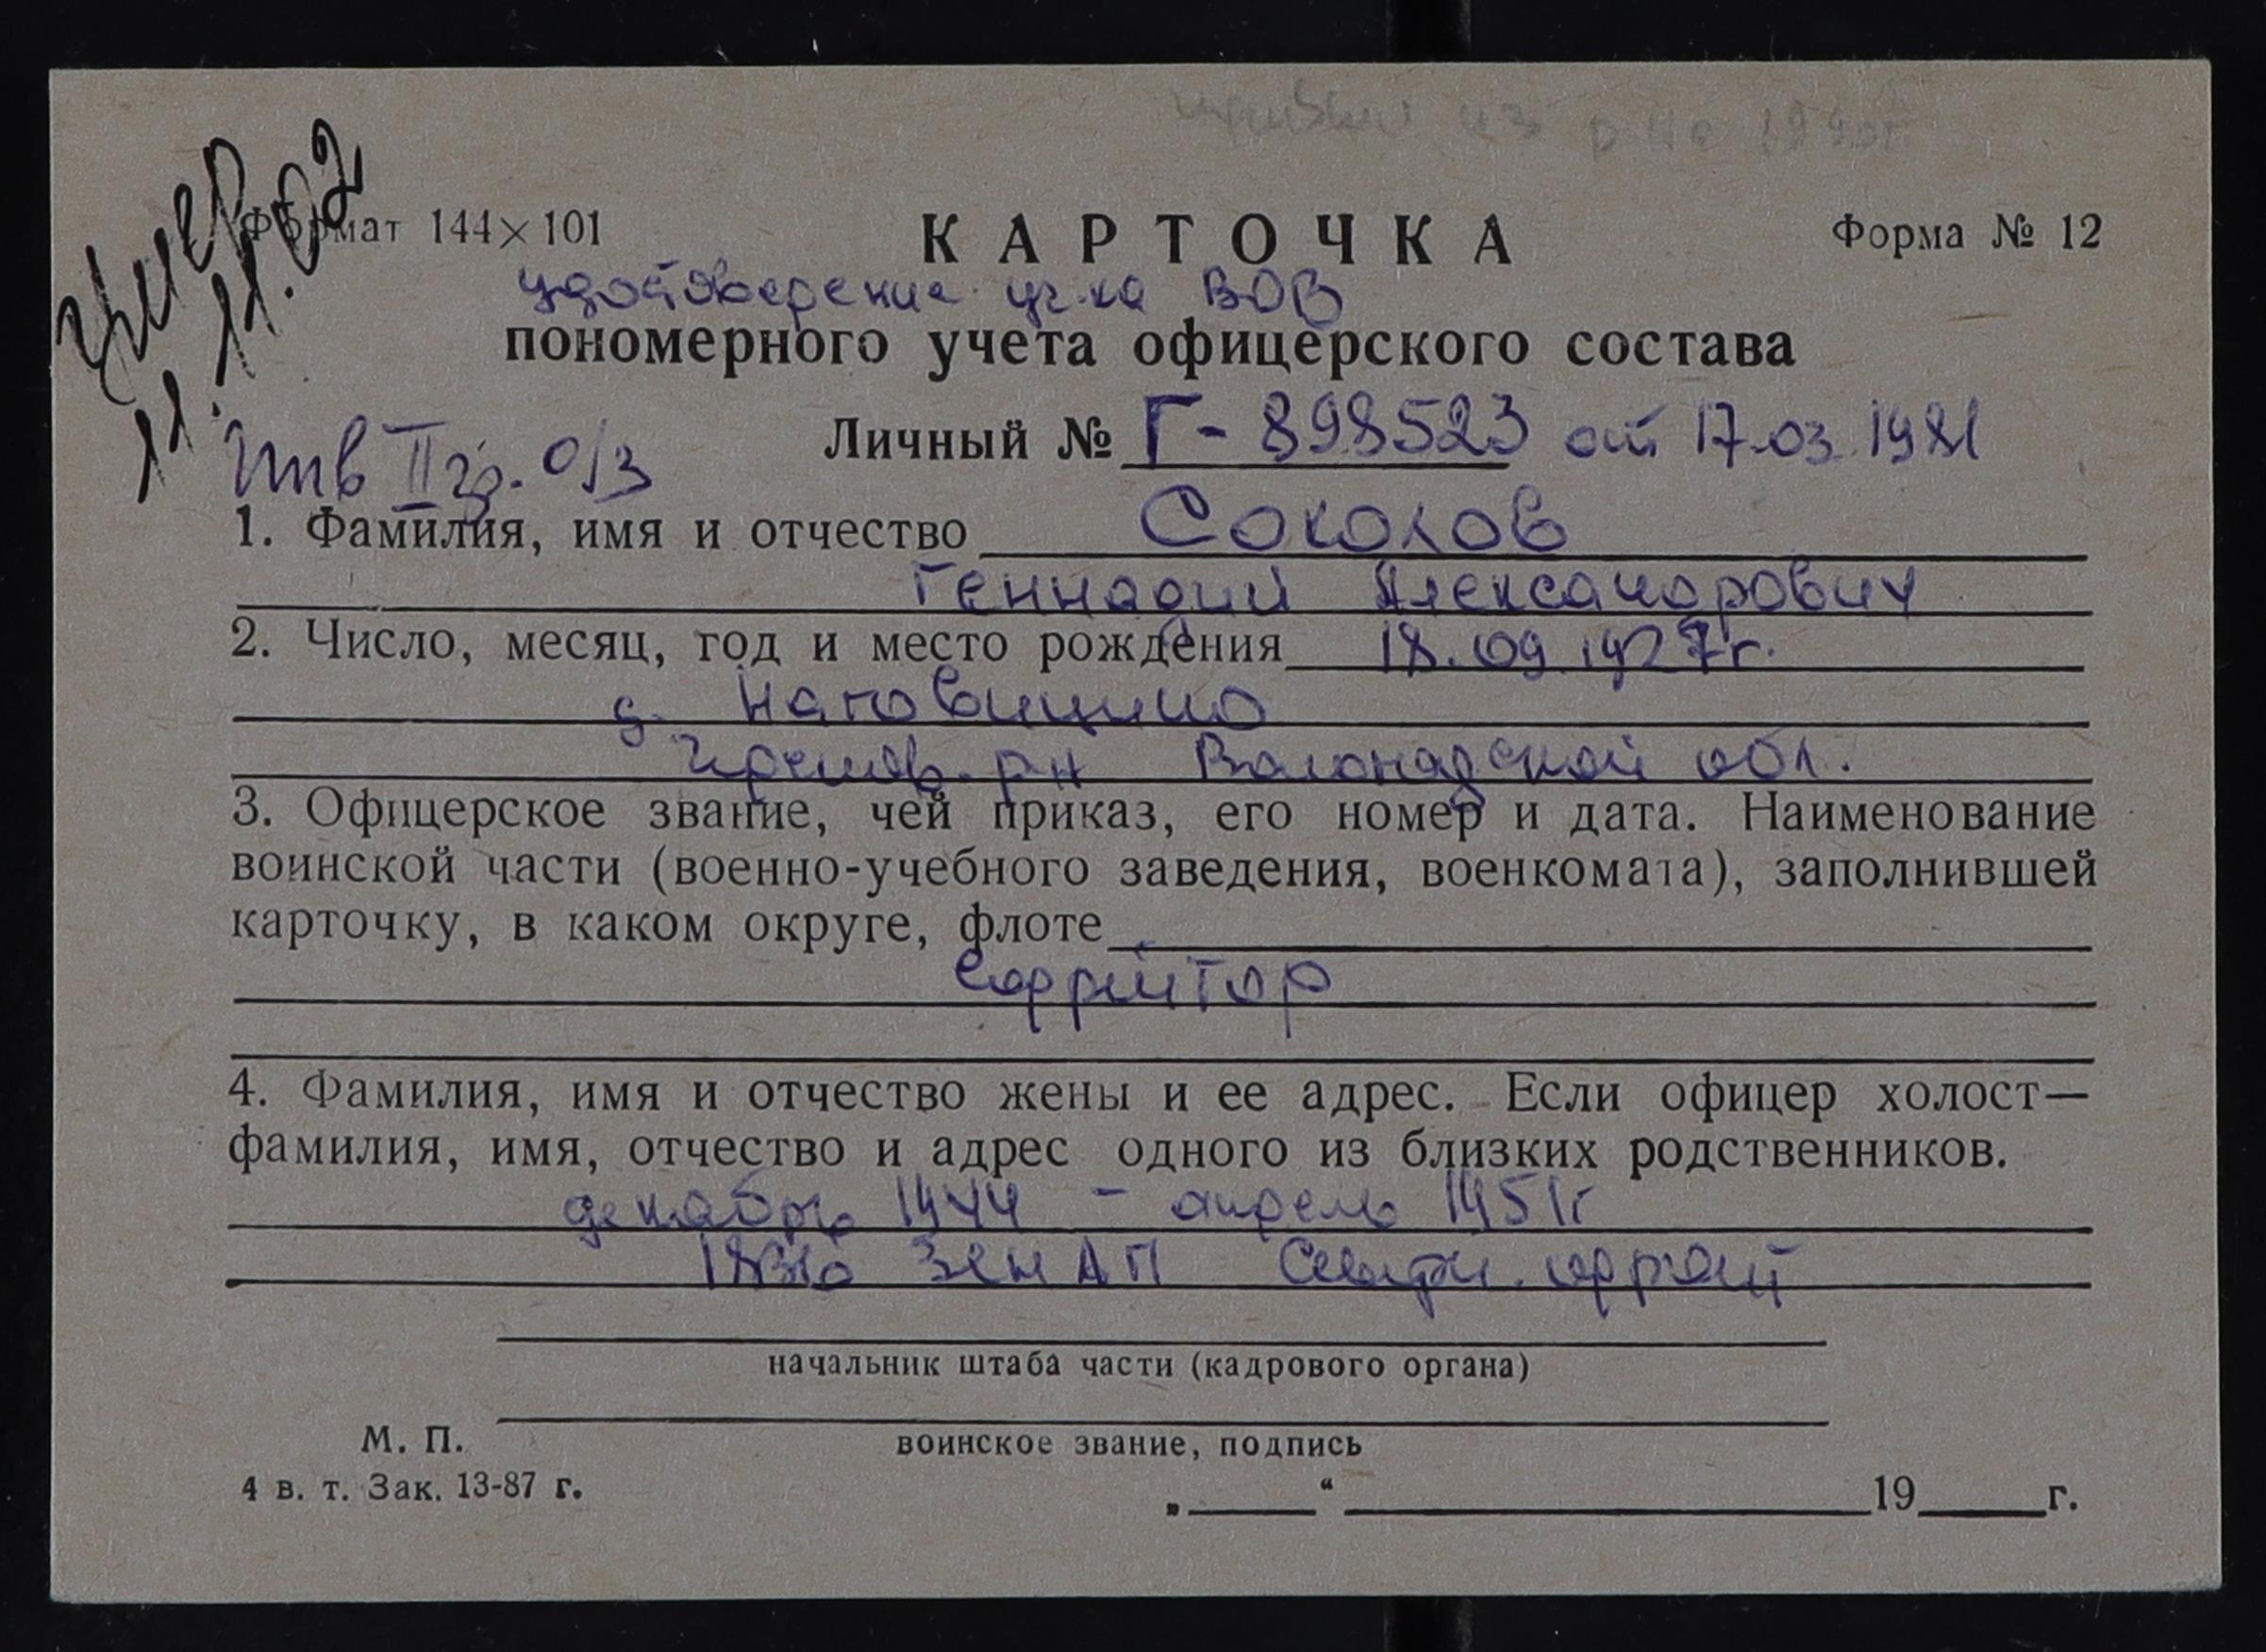 прибыл из р-на 1990г
умер
11.11.02
Формат 144×101
КАРТОЧКА
Форма № 12
удостоверение уч-ка ВОВ
пономерного учета офицерского состава
Инв II гр. о/з
Личный № Г-898523 от 17.03.1981
1. Фамилия, имя и отчество Соколов
Геннадий Александрович
2. Число, месяц, год и место рождения 18.09.1927г.
д.
р-н Вологодской обл.
3. Офицерское звание, чей приказ, его номер и дата. Наименование
воинской части (военно-учебного заведения, военкомата), заполнившей
карточку, в каком округе, флоте
ефрейтор
4. Фамилия, имя и отчество жены и ее адрес. Если офицер холост—
фамилия, имя, отчество и адрес одного из близких родственников.
декабрь 1944 - апрель 1951г
ЗенАП фронт
начальник штаба части (кадрового органа)
М. П.
воинское звание, подпись
4 в. т. Зак. 13-87 г.
„ “ 19 г.